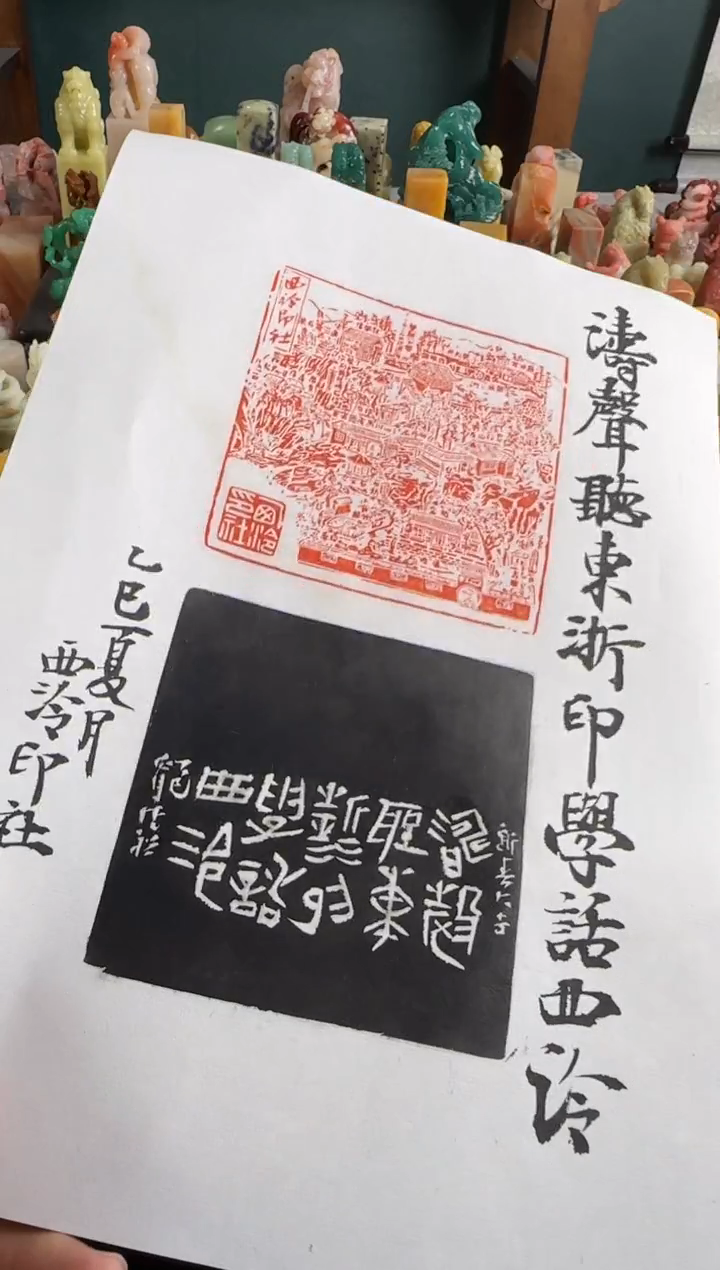 濤聲聽東浙印學話西泠
西泠印社
西泠
印社
濤聲
聽東
浙印
學話
西泠
乙巳夏月
西泠印社